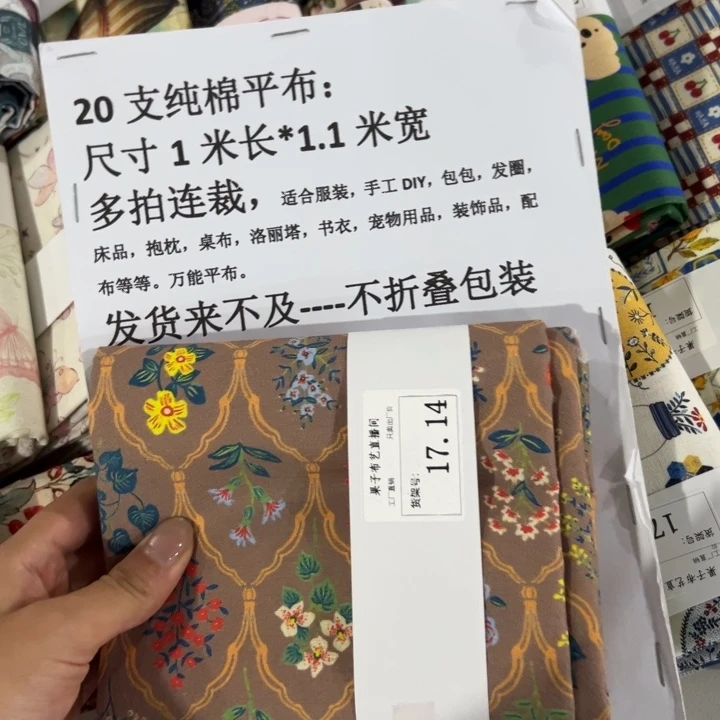 20 支纯棉平布：
尺寸 1 米长*1.1 米宽
多拍连裁，适合服装，手工 DIY，包包，发圈，
床品，抱枕，桌布，洛丽塔，书衣，宠物用品，装饰品，配
布等等。万能平布。
发货来不及----不折叠包装
果子布艺直播间
工厂直销
货架号：
17.14
货架号：
果子布艺直
17
货架号：